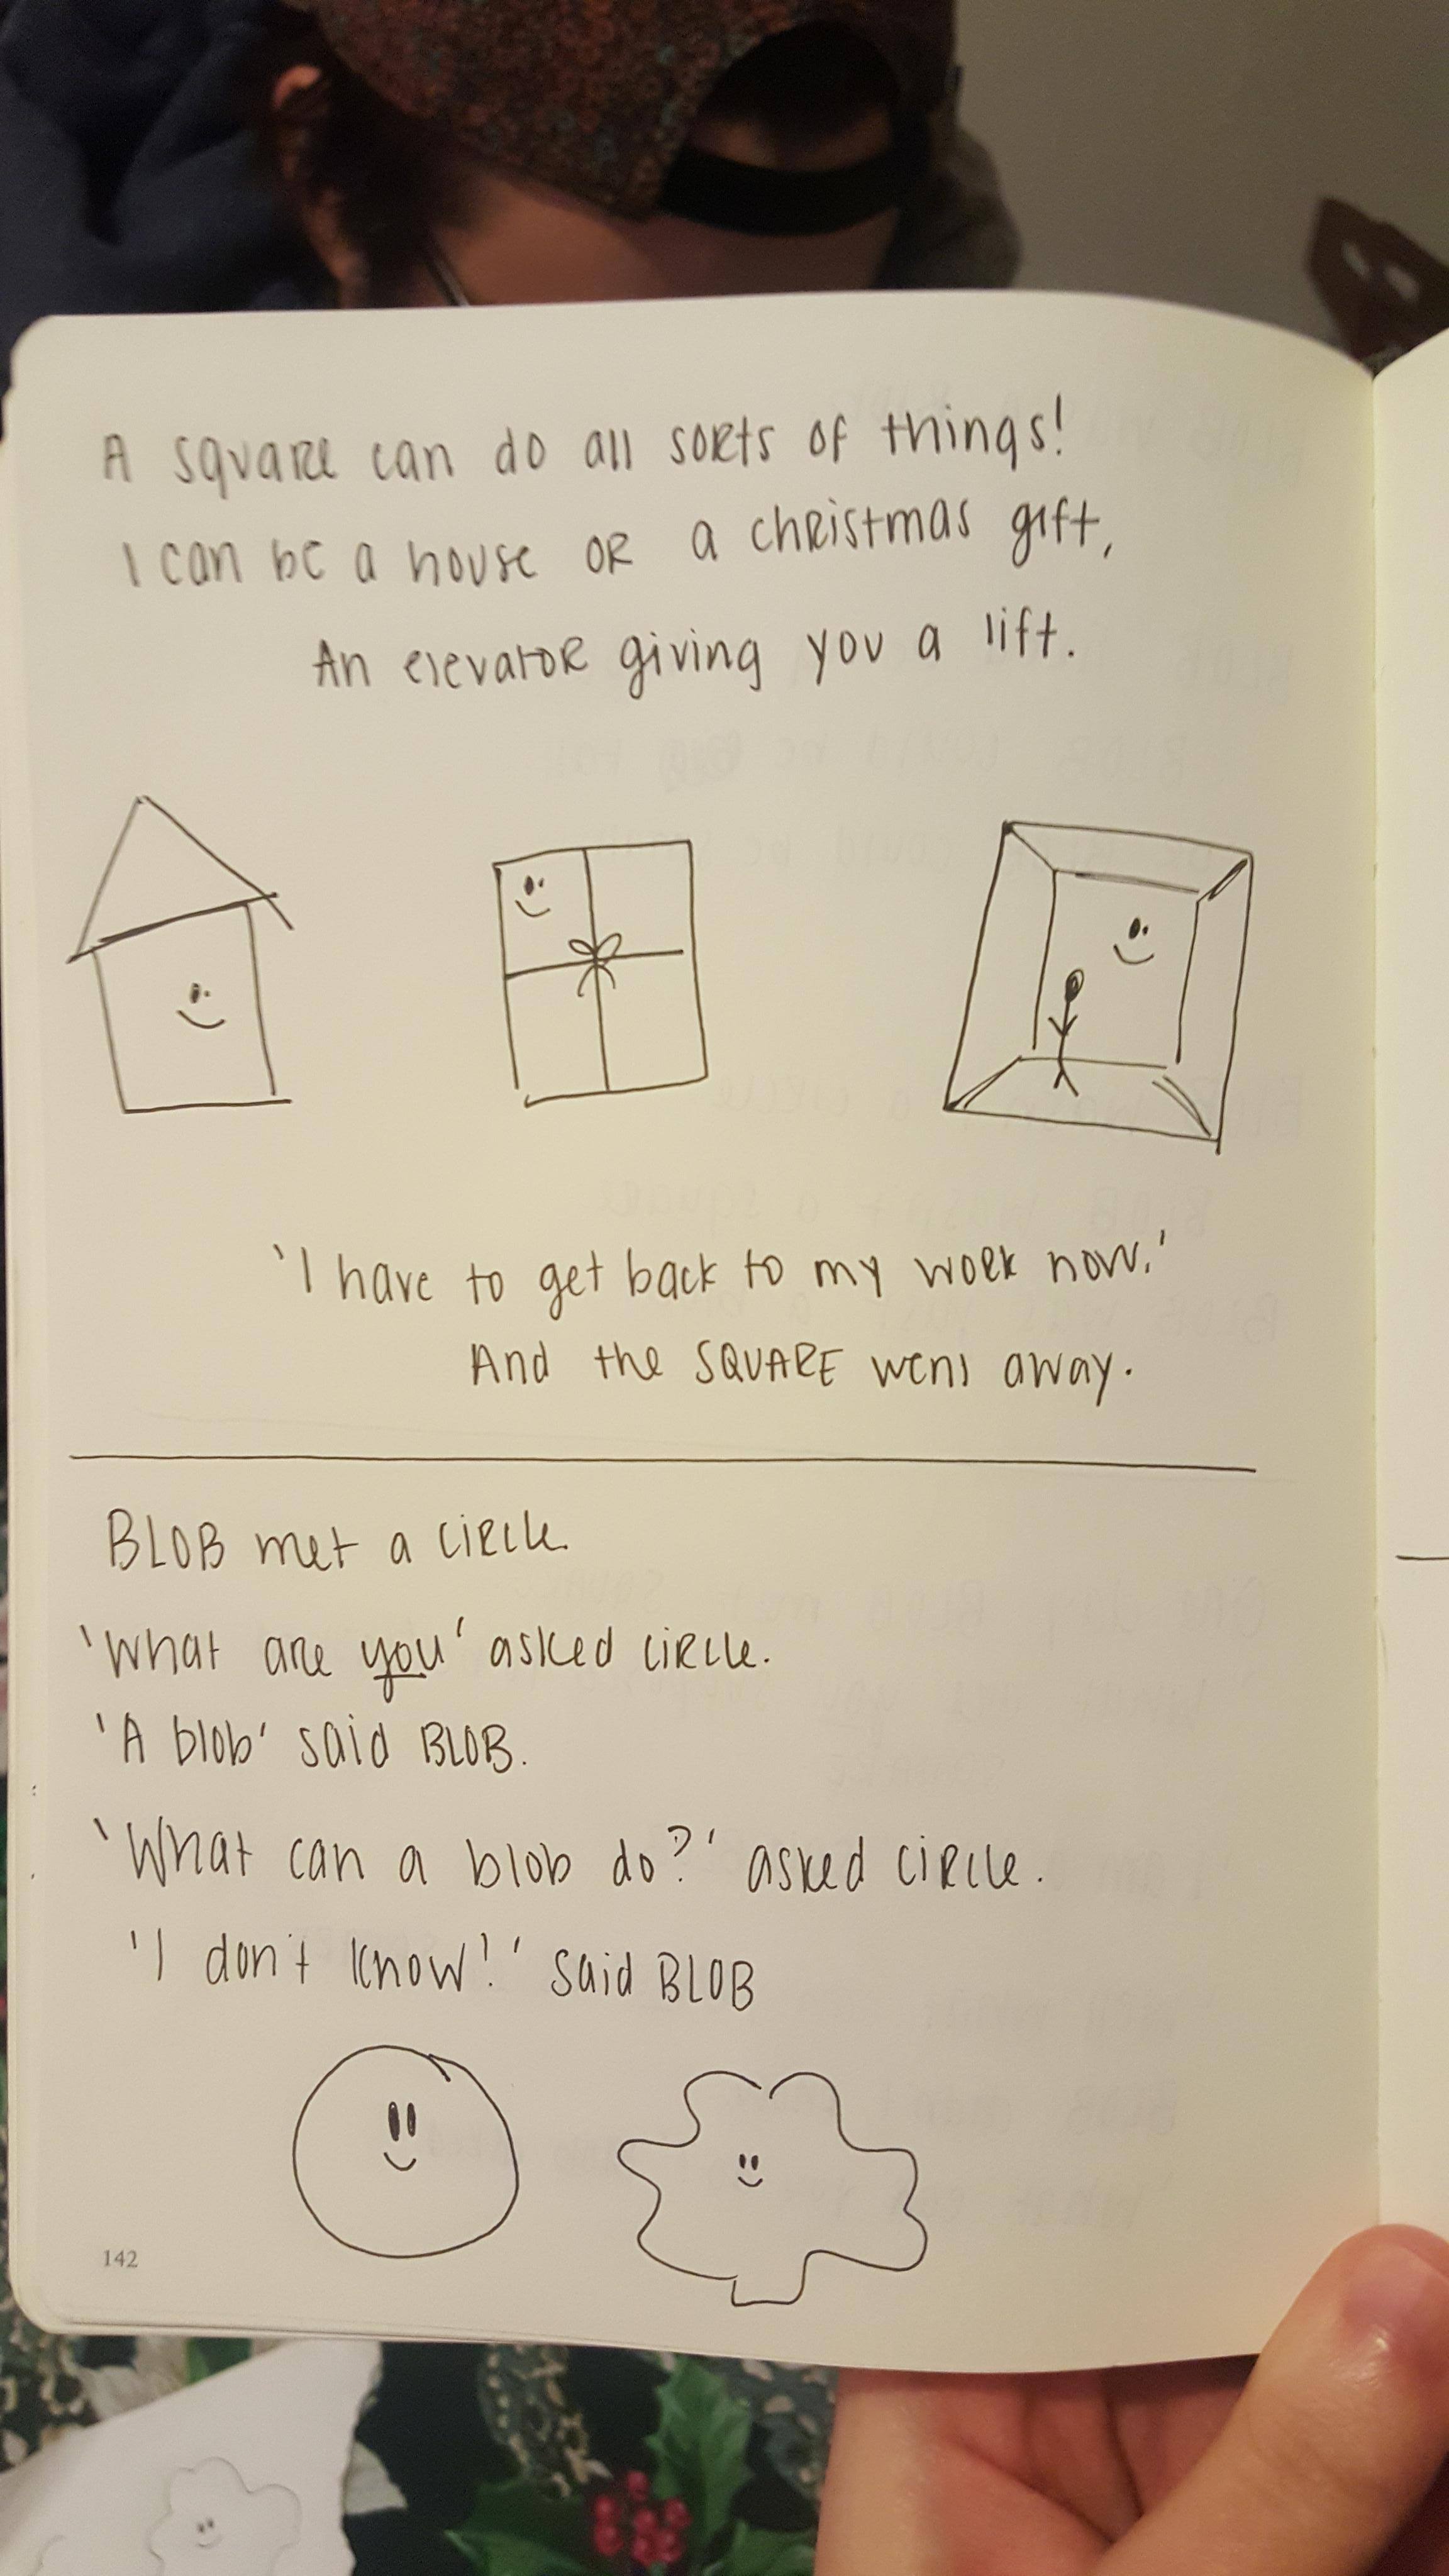 A square can do all sorts of things!
I can be a house or a christmas gift,
An elevator giving you a lift.
'I have to get back to my work now.'
And the SQUARE went away.
BLOB met a circle.
'What are you' asked circle.
'A blob' said BLOB.
'What can a blob do?' asked circle.
'I don't know!' said BLOB
142